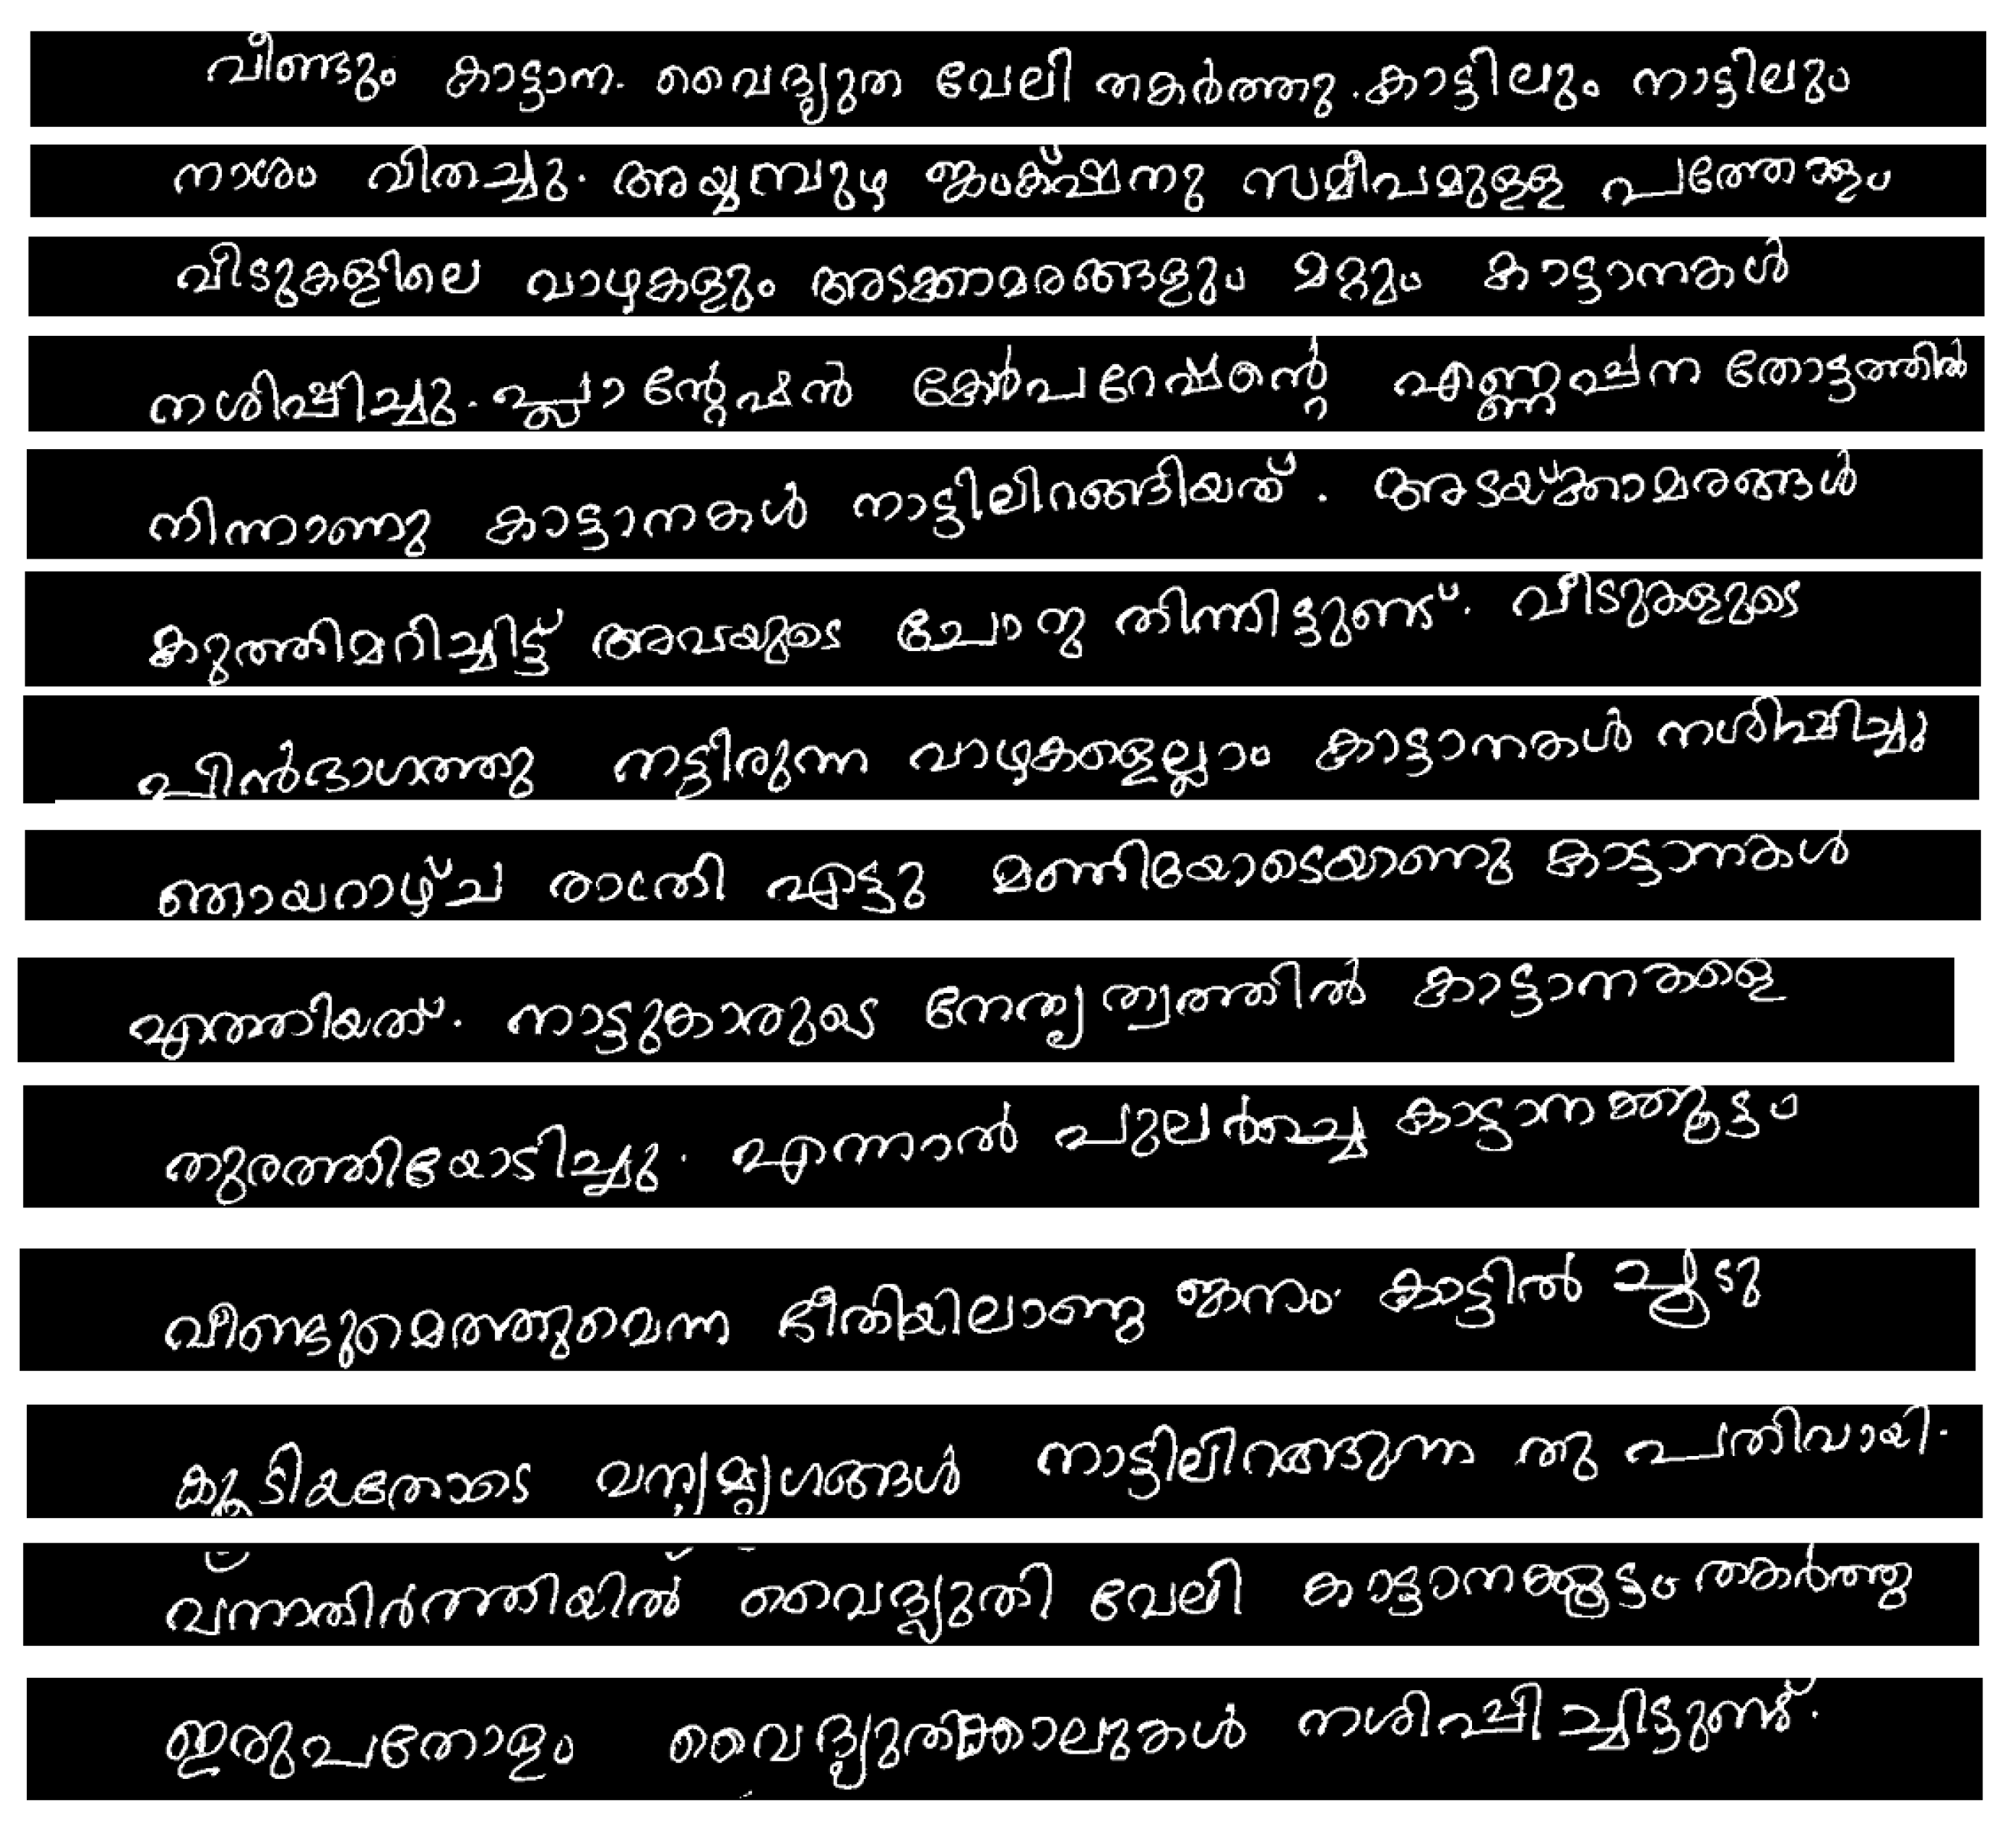 വീണ്ടും കാട്ടാന. വൈദ്യുത വേലി തകർത്തു. കാട്ടിലും നാട്ടിലും
നാശം വിതച്ചു. അയ്യമ്പുഴ ജംക്‌ഷനു സമീപമുള്ള പത്തോളം
വീടുകളിലെ വാഴകളും അടക്കാമരങ്ങളും മറ്റും കാട്ടാനകൾ
നശിപ്പിച്ചു. പ്ലാന്റേഷൻ കോർപറേഷന്റെ എണ്ണപ്പന തോട്ടത്തിൽ
നിന്നാണു കാട്ടാനകൾ നാട്ടിലിറങ്ങിയത്. അടയ്ക്കാമരങ്ങൾ
കുത്തിമറിച്ചിട്ട് അവയുടെ ചോറു തിന്നിട്ടുണ്ട്. വീടുകളുടെ
പിൻഭാഗത്തു നട്ടിരുന്ന വാഴകളെല്ലാം കാട്ടാനകൾ നശിപ്പിച്ചു
ഞായറാഴ്ച രാത്രി എട്ടു മണിയോടെയാണു കാട്ടാനകൾ
എത്തിയത്. നാട്ടുകാരുടെ നേതൃത്വത്തിൽ കാട്ടാനകളെ
തുരത്തിയോടിച്ചു. എന്നാൽ പുലർച്ചെ കാട്ടാനക്കൂട്ടം
വീണ്ടുമെത്തുമെന്ന ഭീതിയിലാണു ജനം. കാട്ടിൽ ചൂടു
കൂടിയതോടെ വന്യമൃഗങ്ങൾ നാട്ടിലിറങ്ങുന്നതു പതിവായി.
വനാതിർത്തിയിൽ വൈദ്യുതി വേലി കാട്ടാനക്കൂട്ടം തകർത്തു
ഇരുപതോളം വൈദ്യുതിക്കാലുകൾ നശിപ്പിച്ചിട്ടുണ്ട്.